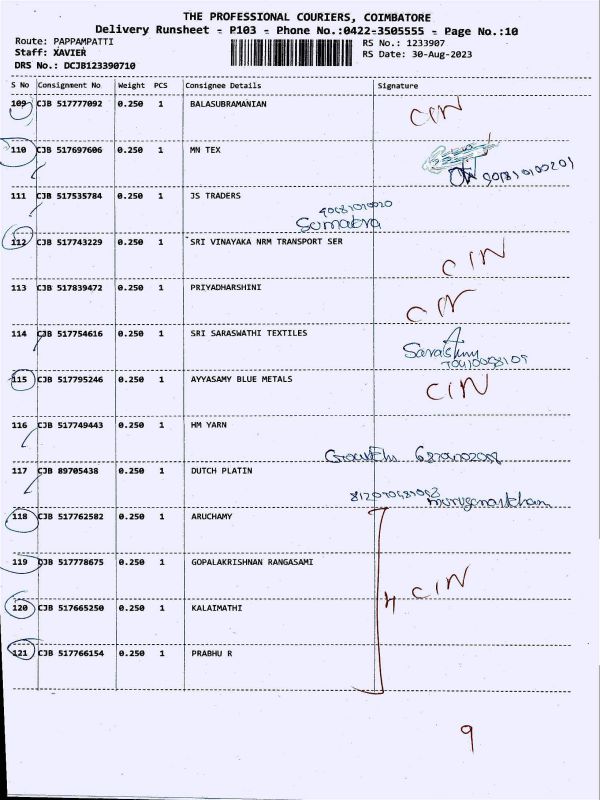 THE PROFESSIONAL COURIERS, COIMBATORE
Delivery Runsheet - P103 - Phone No.:0422-3505555 - Page No.:10
Route: PAPPAMPATTI
RS No.: 1233907
Staff: XAVIER
RS Date: 30-Aug-2023
DRS No.: DCJB123390710
S No Consignment No Weight PCS Consignee Details Signature
109 CJB 517777092 0.250 1 BALASUBRAMANIAN CIN
110 CJB 517697606 0.250 1 MN TEX
111 CJB 517535784 0.250 1 JS TRADERS
Sumathra
112 CJB 517743229 0.250 1 SRI VINAYAKA NRM TRANSPORT SER CIN
113 CJB 517839472 0.250 1 PRIYADHARSHINI CIN
114 CJB 517754616 0.250 1 SRI SARASWATHI TEXTILES
115 CJB 517795246 0.250 1 AYYASAMY BLUE METALS CIN
116 CJB 517749443 0.250 1 HM YARN
117 CJB 89705438 0.250 1 DUTCH PLATIN
118 CJB 517762582 0.250 1 ARUCHAMY
119 CJB 517778675 0.250 1 GOPALAKRISHNAN RANGASAMI 4 CIN
120 CJB 517665250 0.250 1 KALAIMATHI
121 CJB 517766154 0.250 1 PRABHU R
9